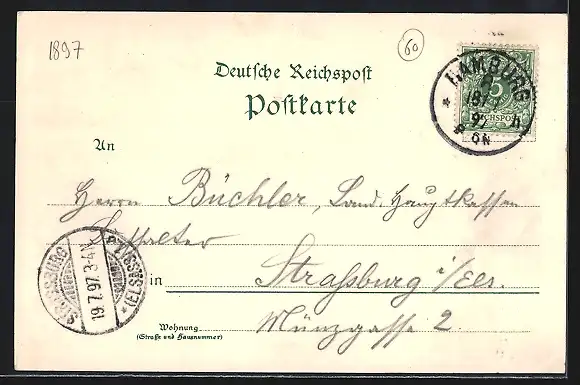 1897
60
Deutsche Reichspost
Postkarte
HAMBURG
18/7
97
5
REICHSPOST
6-7N
An
Herrn Büchler, Land. Hauptkassen
STRASSBURG
19.7.97.3-4N
* (ELS.)
in Straßburg i/Els.
Münzgasse 2.
Wohnung
(Straße und Hausnummer)